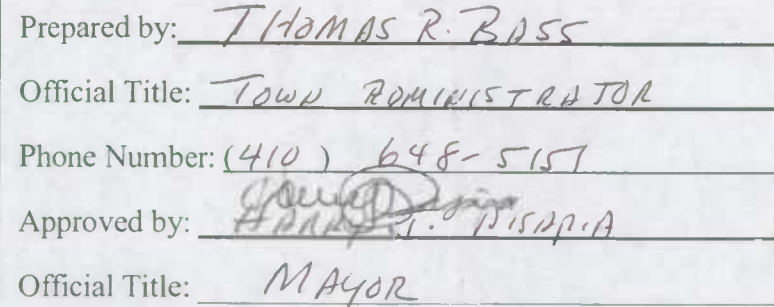 Prepared by: THOMAS R. BASS
Official Title: TOWN ADMINISTRATOR
Phone Number: (410) 648-5157
Approved by: HARRY
Official Title: MAYOR